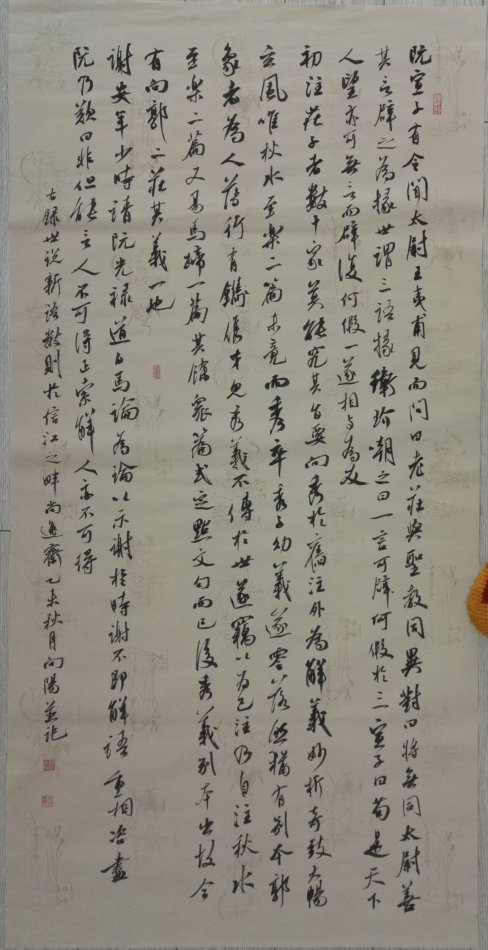 阮宣子有令闻太尉王夷甫见而问曰老莊與聖教同異對曰將無同太尉善
其言辟之為掾世謂三語掾衛玠嘲之曰一言可辟何假於三宣子曰苟是天下
人望亦可無言而辟復何假一遂相與為友
初注莊子者數十家莫能究其旨要向秀於舊注外為解義妙析奇致大暢
玄風唯秋水至樂二篇未竟而秀卒秀子幼義遂零落然猶有別本郭
象者為人薄行有儁才見秀義不傳於世遂竊以為己注乃自注秋水
至樂二篇又易馬蹄一篇其餘眾篇或定點文句而已後秀義別本出故今
有向郭二莊其義一也
謝安年少時請阮光祿道白馬論為論以示謝於時謝不即解語重相咨盡
阮乃歎曰非但能言人不可得正索解人亦不可得
右錄世说新語數則於信江之畔尚逸齋乙未秋月向陽並記